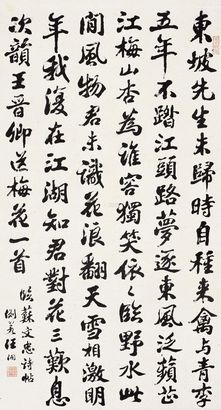 東坡先生未歸時自種來禽与青李
五年不踏江頭路夢逐東風泛蘋芷
江梅山杏為誰容獨笑依〻臨野水此
間風物君未識花浪翻天雪相激明
年我復在江湖知君對花三歎息
次韻王晉卿送梅花一首
臨蘇文忠詩帖
渊若汪洵